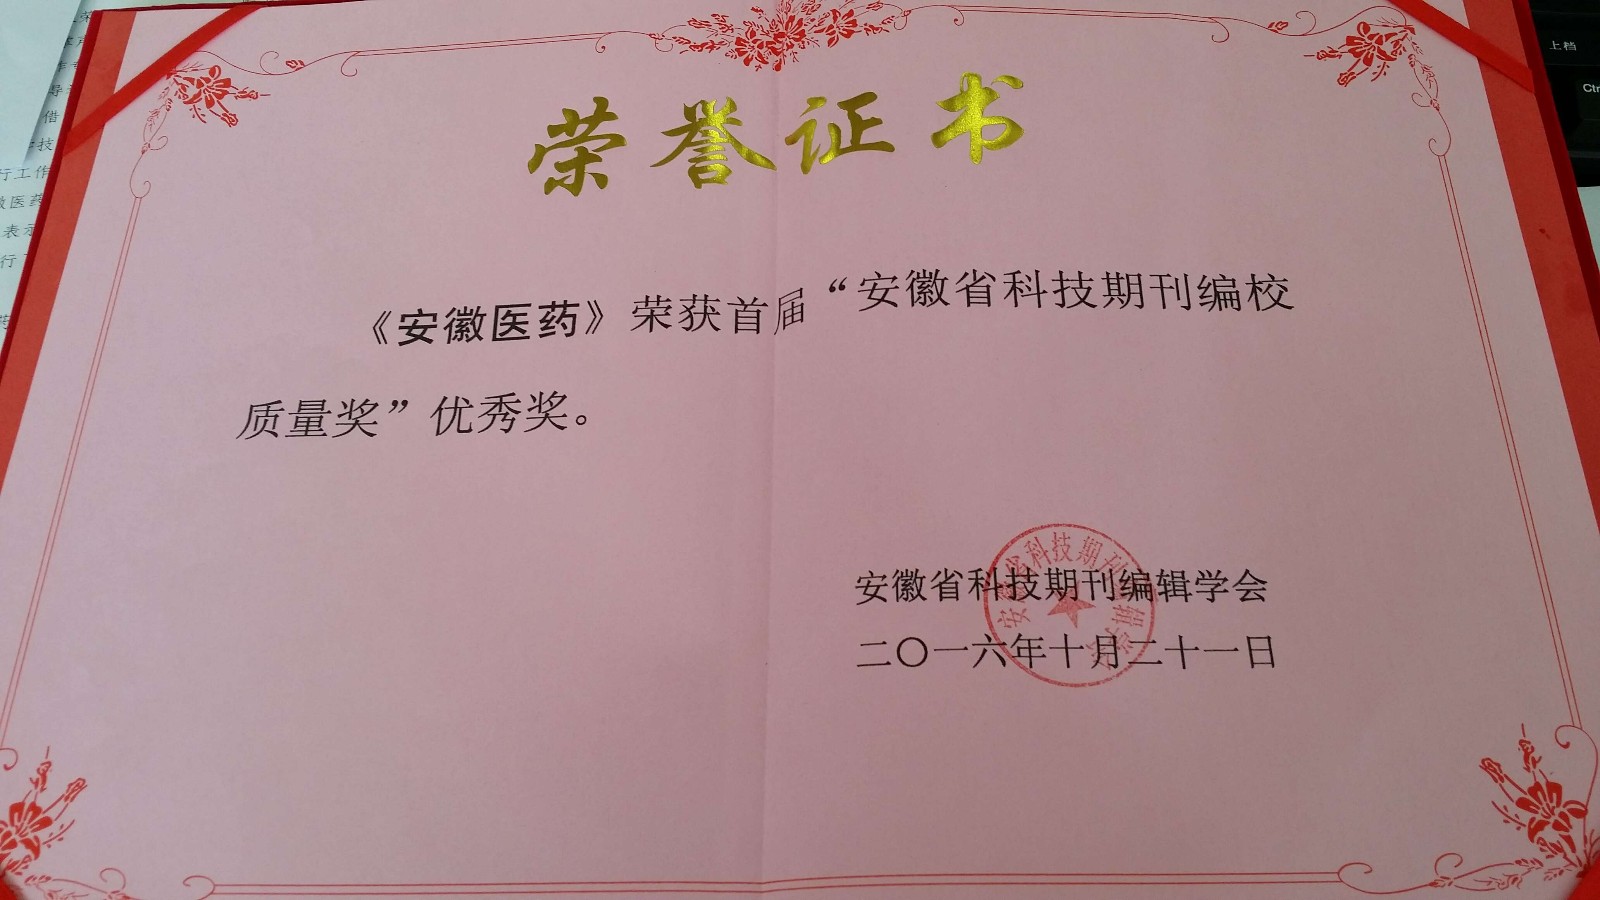 荣誉证书
《安徽医药》荣获首届“安徽省科技期刊编校
质量奖”优秀奖。
安徽省科技期刊编辑学会
二〇一六年十月二十一日
安徽省科技期刊编辑学会
上档
Ctr
借
技
行工作
医药
表示
行